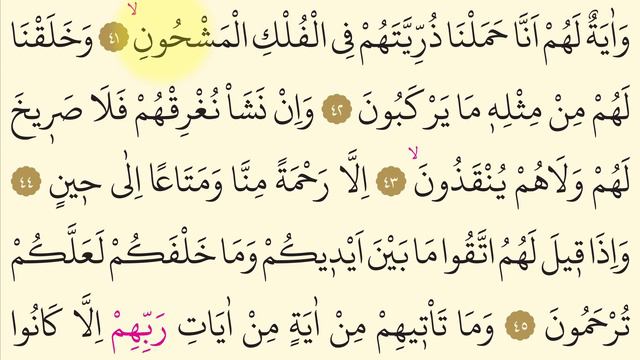 وَاٰيَةٌ لَهُمْ اَنَّا حَمَلْنَا ذُرِّيَّتَهُمْ فِى الْفُلْكِ الْمَشْحُونِۙ ﴿٤١﴾ وَخَلَقْنَا
لَهُمْ مِنْ مِثْلِهٖ مَا يَرْكَبُونَ ﴿٤٢﴾ وَاِنْ نَشَأْ نُغْرِقْهُمْ فَلَا صَرٖيخَ
لَهُمْ وَلَاهُمْ يُنْقَذُونَۙ ﴿٤٣﴾ اِلَّا رَحْمَةً مِنَّا وَمَتَاعًا اِلٰى حٖينٍ ﴿٤٤﴾
وَاِذَا قٖيلَ لَهُمُ اتَّقُوا مَا بَيْنَ اَيْدٖيكُمْ وَمَا خَلْفَكُمْ لَعَلَّكُمْ
تُرْحَمُونَ ﴿٤٥﴾ وَمَا تَأْتٖيهِمْ مِنْ اٰيَةٍ مِنْ اٰيَاتِ رَبِّهِمْ اِلَّا كَانُوا